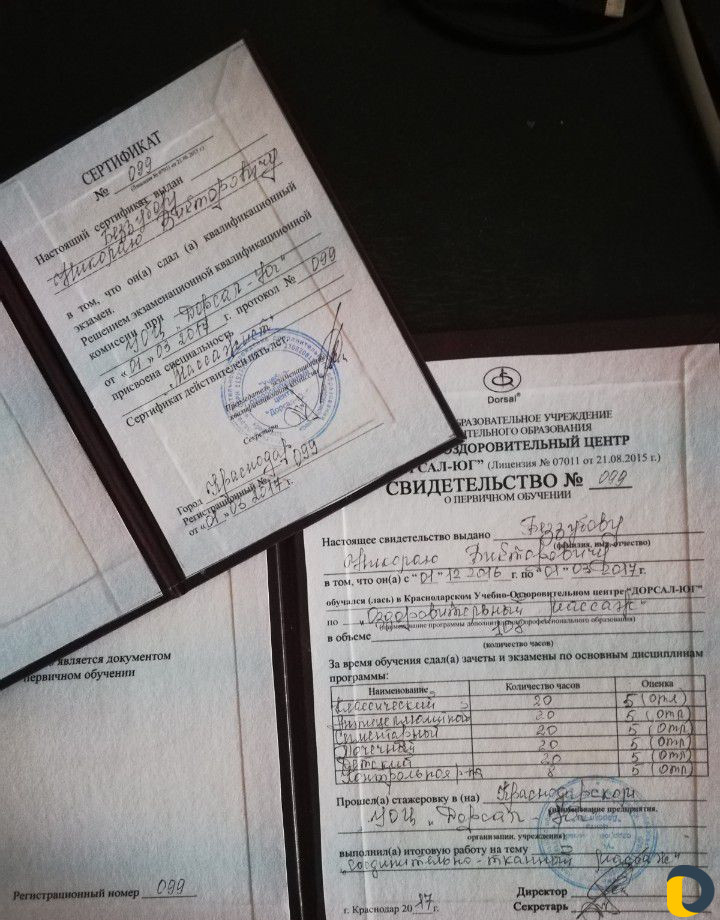 СЕРТИФИКАТ
№ 099
(Лицензия № 07011 от 21.08.2015 г.)
Настоящий сертификат выдан
Беззубову
Николаю Викторовичу
в том, что он(а) сдал (а) квалификационный
экзамен.
Решением экзаменационной квалификационной
комиссии при УОЦ „Дорсал-Юг"
от «01» 03 2017 г. протокол № 099
присвоена специальность
„Массажист"
Сертификат действителен пять лет.
Председатель экзаменационной
квалификационной комиссии
Секретарь
Город Краснодар
Регистрационный № 099
от «01» 03 2017 г.
Dorsal®
БРАЗОВАТЕЛЬНОЕ УЧРЕЖДЕНИЕ
ИТЕЛЬНОГО ОБРАЗОВАНИЯ
ОЗДОРОВИТЕЛЬНЫЙ ЦЕНТР
ОРСАЛ-ЮГ" (Лицензия № 07011 от 21.08.2015 г.)
СВИДЕТЕЛЬСТВО № 099
О ПЕРВИЧНОМ ОБУЧЕНИИ
Настоящее свидетельство выдано Беззубову
(фамилия, имя, отчество)
Николаю Викторовичу
в том, что он(а) с "01" 12 2016 г. по "01" 03 2017 г.
обучался (лась) в Краснодарском Учебно-Оздоровительном центре "ДОРСАЛ-ЮГ"
по „Оздоровительный массаж"
(наименование программы дополнительного профессионального образования)
в объеме 108
(количество часов)
За время обучения сдал(а) зачеты и экзамены по основным дисциплинам
программы:
Наименование Количество часов Оценка
Классический 20 5 (отл)
Антицеллюлитный 20 5 (отл)
Сегментарный 20 5 (отл)
Точечный 20 5 (отл)
Детский 20 5 (отл)
Контрольная р-та 8 5 (отл)
Прошел(а) стажировку в (на) Краснодарском
(наименование предприятия,
УОЦ „Дорсал-Юг"
организации, учреждения)
выполнил(а) итоговую работу на тему
„Соединительно-тканный массаж"
Директор
г. Краснодар 2017 г. Секретарь
является документом
первичном обучении
Регистрационный номер 099